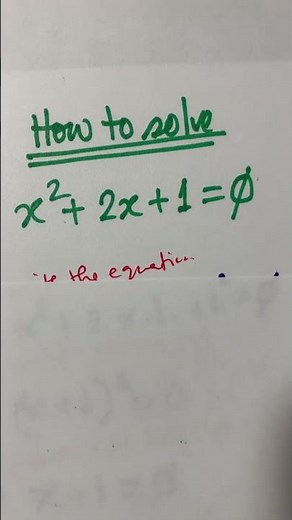 How to solve
x² + 2x + 1 = 0
the equation